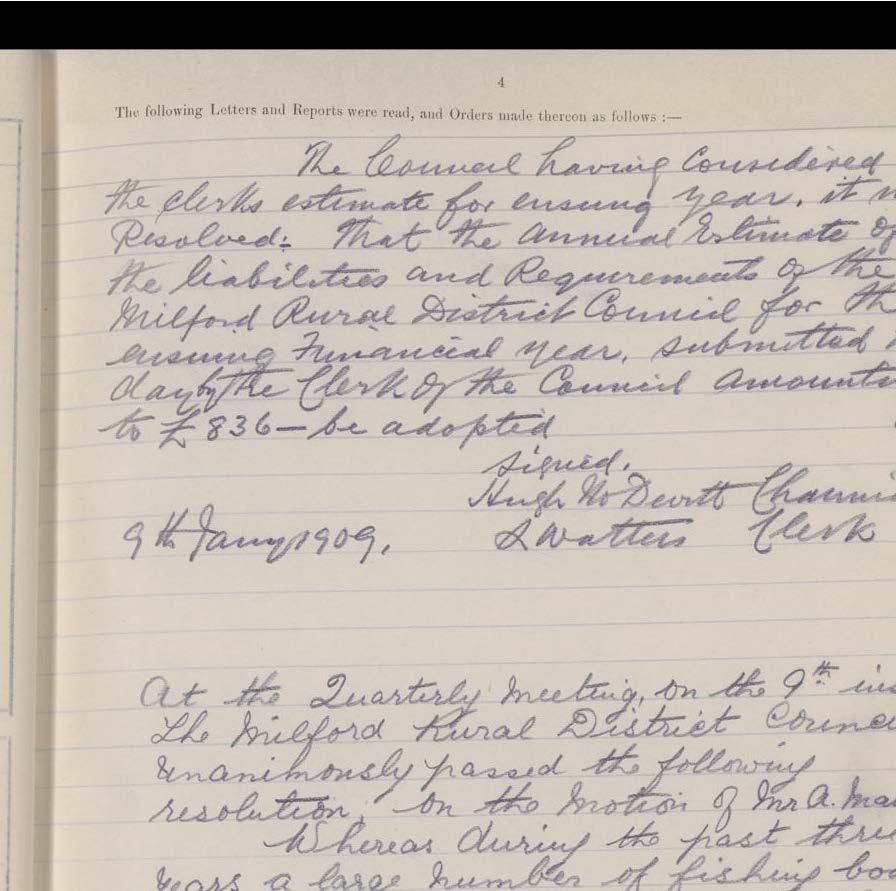 4
The following Letters and Reports were read, and Orders made thereon as follows :—
The Council having Considered
the clerks estimate for ensuing year, it
Resolved: That the Annual Estimate of
the liabilities and Requirements of the
Milford Rural District Council for the
ensuing Financial year, submitted
day by the Clerk of the Council amounts
to £836 — be adopted
signed.
Hugh McDevitt
9th Jany 1909, Watters Clerk
At the Quarterly Meeting, on the 9th ins
The Milford Rural District Counc
unanimously passed the following
resolution, on the motion of Mr A. Ma
Whereas during the past three
years a large number of fishing bo